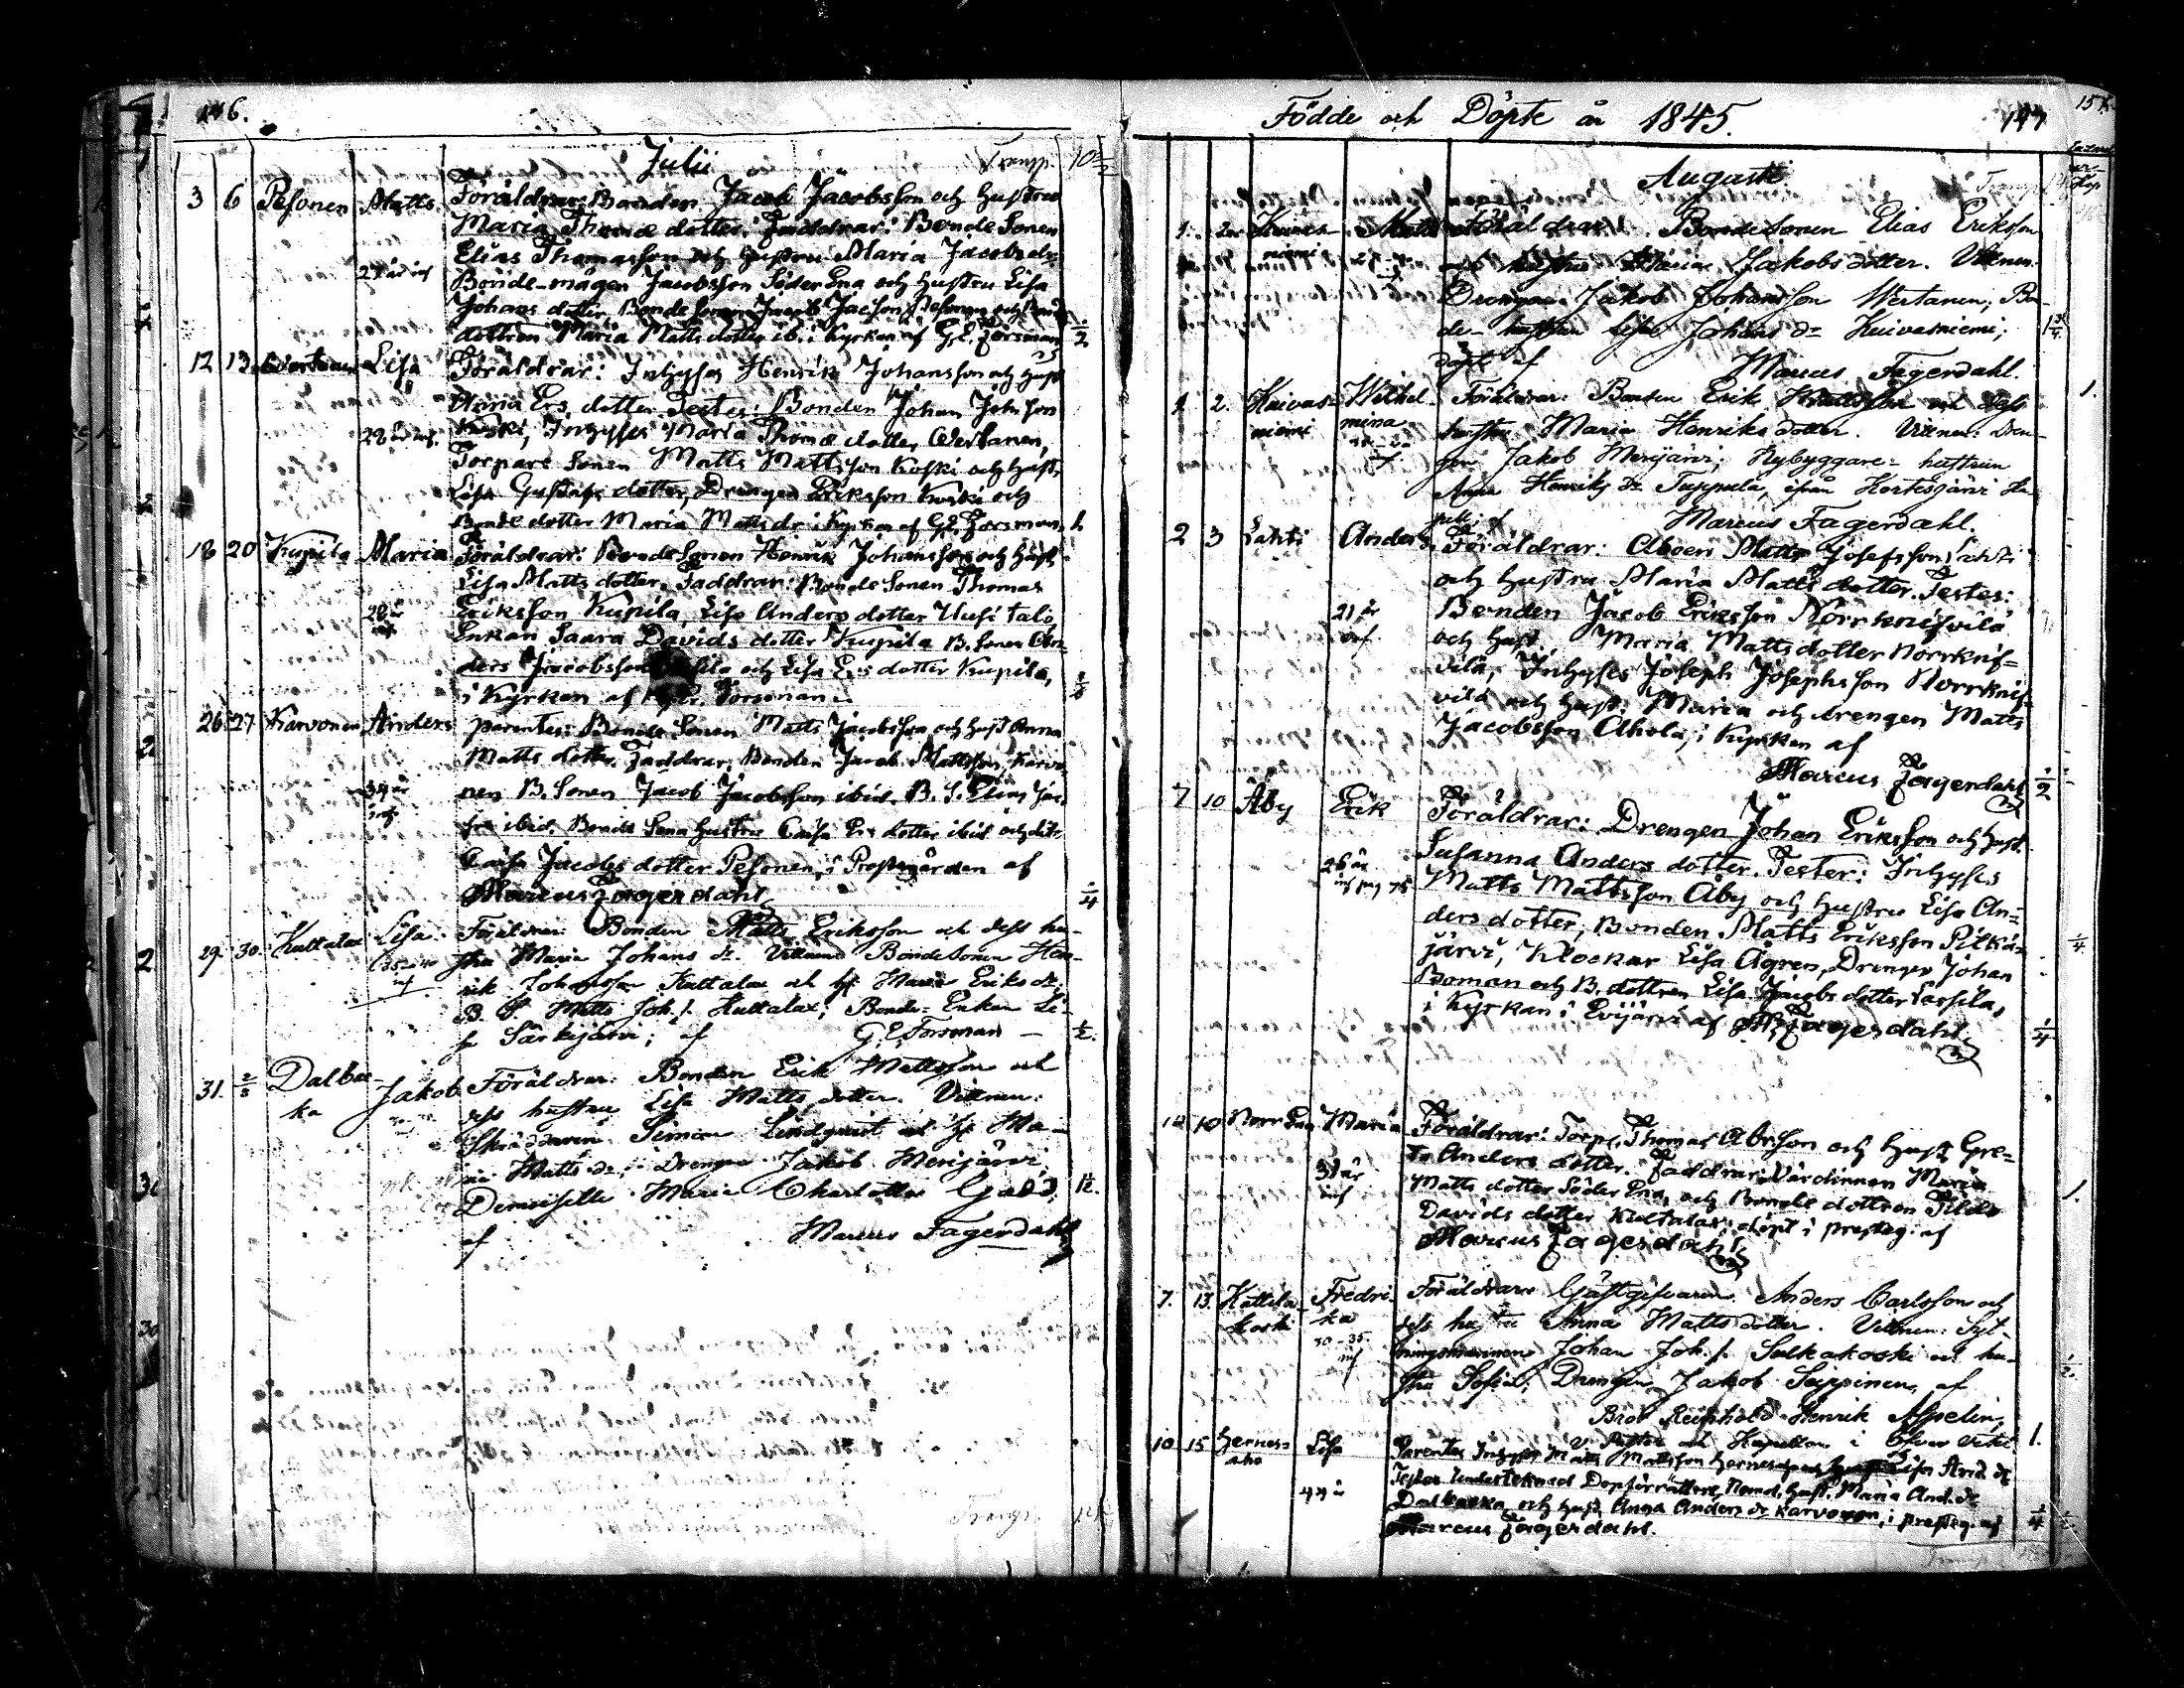 146.
Julii
Transp. 10
3 6 Pesonen Matts Föräldrar: Bonden Jacob Jacobsson och hustru
Maria Thomæ dotter. Faddrar: Bonde Sonen
Elias Thomasson och hustru Maria Jacobs dr
27 år inf Bonde-mågen Jacobsson Söder Ena och hustru Lisa
Johans dotter, Bonde Sonen Jacob Jacsson Pesonen och
dottren Maria Matts dotter ib. i Kyrkan af G. E. Forsman 1/2.
12 13 Wertanen Lisa Föräldrar: Inhyses Henrik Johansson och hust
Anna Ers dotter Testes: Bonden Johan Johsson
28 år inf. Koski, Inhyses Maria Thomæ dotter Wertanen,
Torpare Sonen Matts Mattsson Koski och hust,
Lisa Gustafs dotter, Drengen Eriksson Koski och
Bonde dotter Maria Matts dr i Kyrkan af G. E. Forsman, 1.
18 20 Kupila Maria Föräldrar: Bonde Sonen Henrik Johansson och hust
Lisa Matts dotter. Faddrar: Bonde Sonen Thomas
20 år inf Eriksson Kupila, Lisa Anders dotter Uusi talo
Enkan Saara Davids dotter Kupila B. Sonen An-
ders Jacobsson och Lisa Ers dotter Kupila,
i Kyrkan af Forsman 1/2
26 27 Karvonen Anders parentes: Bonde Sonen Matts Jacobsson och hust Anna
Matts dotter. Faddrar. Bonden Jacob Mattsson Karvo-
34 år inf nen B. Sonen Jacob Jacobsson ibid. B. S. Elias Jac.
son ibid. Bonde Sona hustru Caisa Ers dotter ibid och
Caisa Jacobs dotter Pesonen, i Prestgården af
Marcus Fagerdahl 1/4
29. 30. Kultalax Lisa. Föräldrar: Bonden Matts Eriksson och dess hu-
inf stru Maria Johans dr. Vittnen Bonde Sonen Hen-
rik Johansson Kultalax och h. Maria Eriks dr.
B. S. Matts Joh. s. Kultalax; Bonde-Enkan Li-
sa Särkijärvi; af G. E. Forsman — 1/2.
31. 2/8 Dalbac- Jakob Föräldrar: Bonden Erik Mattsson och
ka dess hustru Lisa Matts dotter. Vittnen:
Skräddaren Simon Lindqvist och h. Ma-
ria Matts dr.; Drengen Jakob Merijärvi,
Demoiselle Maria Charlotta Gadd; 1/2.
af Marcus Fagerdahl
Födde och Döpte år 1845. 147
Augusti
1. 2. Kuivas- Matts Föräldrar: Bonde Sonen Elias Eriksson
niemi och hustru Maria Jakobs dotter. Vittnen:
Drengen Jakob Johansson Wertanen; Bon-
de-hustrun Lisa Johans dr Kuivasniemi;
döpt af Marcus Fagerdahl.
1 2. Kuivas- Wilhel- Föräldrar: Bonden Erik Mattsson och dess
niemi mina hustru Maria Henriks dotter. Vittnen: Dren-
gen Jakob Merijärvi; Nybyggare-hustrun
Anna Henriks dr Tuppula, ifrån Kortesjärvi Ka-
pell; af Marcus Fagerdahl. 1.
2 3 Lahti Anders Föräldrar: Aboen Matts Josefsson Lahti
och hustru Maria Matts dotter. Testes:
21 år inf. Bonden Jacob Eriksson Norrknifvilä
och hust. Maria Matts dotter Norrknif-
vilä, Inhyses Joseph Josephsson Norrknif-
vilä och hust. Maria och drengen Matts
Jacobsson Ahola, i Kyrkan af
Marcus Fagerdahl 1/2
7 10 Åby Erik Föräldrar: Drengen Johan Eriksson och hust.
Susanna Anders dotter. Tester: Inhyses
26 år inf Matts Mattsson Åby och hustru Lisa An-
ders dotter, Bonden Matts Eriksson Pitkä-
järvi, Klockar Lisa Ågren, Drengen Johan
Boman och B. dottren Lisa Jacobs dotter Lassila,
i Kyrkan i Evijärvi af M. Fagerdahl. 1/4
10 Norr Ena Maria Föräldrar: Torp. Thomas Abrsson och hust. Gre-
ta Anders dotter. Faddrar: Värdinnan Maria
31 år inf Matts dotter Söder Ena, och Bonde dottren Tilda
Davids dotter Kultalax; döpt i prestg. af
Marcus Fagerdahl. 1.
7. 13. Kattila- Fredri- Föräldrar: Gästgifvaren Anders Carlsson och
koski ka dess hustru Anna Matts dotter. Vittnen: Syt-
30-35 inf ningsmannen Johan Joh. s. Sulkakoski och hu-
stru Sofia; Drengen Jakob Seppinen, af
Bror Reinhold Henrik Aspelin,
V. Pastor och Kapellan i Öfver Vetil 1.
10. 15 Hernes- Lisa Parentes Inhyses Matts Mattsson Hernesaho Lisa And. dr
aho Testes Undertecknad Dopförrättare, Nämd. hust. Maria And. dr
44 år Dalbacka och hust. Anna Anders dr Karvonen, i prestg. af
Marcus Fagerdahl. 1/4